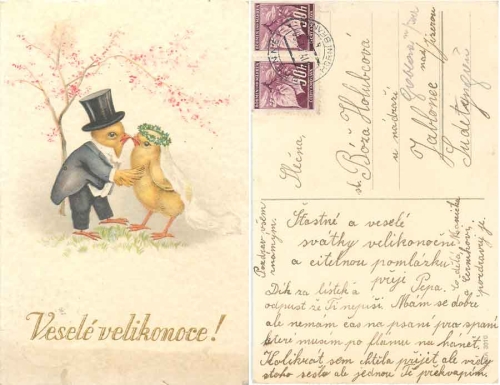 Veselé velikonoce!
Slečna,
Boža Holubcová
u nádraží
Jablonec nad
Sudetengau
Šťastné a veselé
svátky velikonoční
a citelnou pomlázku
přeje Pepa.
Dík za lístek a
odpusť že Ti nepíši. Mám se dobře
ale nemám čas na psaní pro spaní
které musím po flámu na
Kolikrát sem chtěla přijet ale vždy
z toho sešlo ale jednou Tě překvapím.
Pozdrav všem
známým.
Co dělá
pozdravuj je.